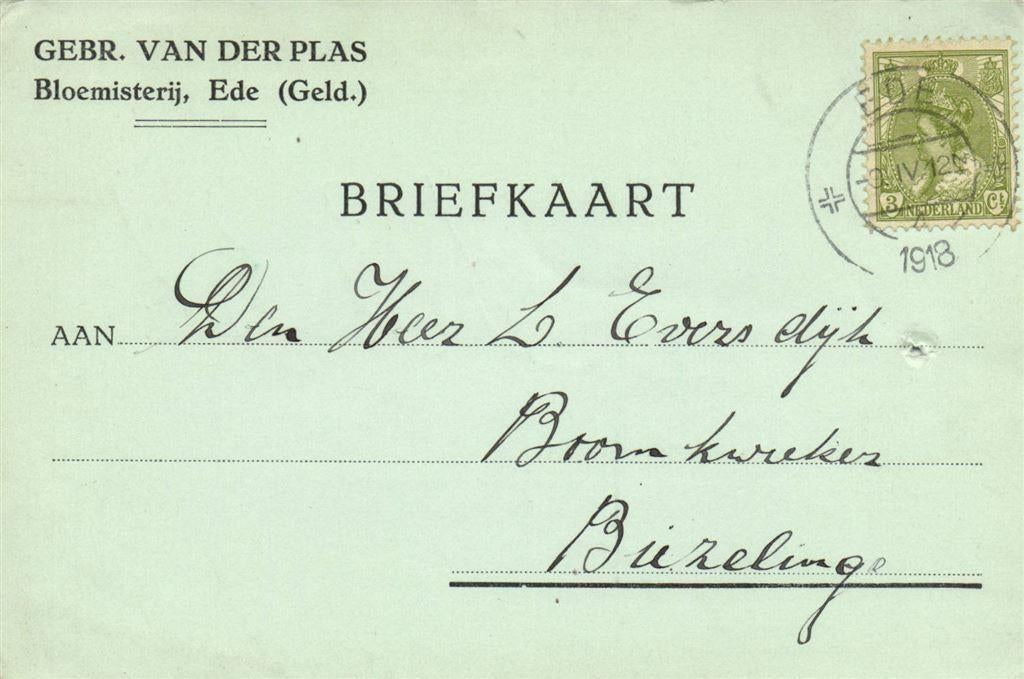 GEBR. VAN DER PLAS
Bloemisterij, Ede (Geld.)
EDE
IV. 12N
1918
3 NEDERLAND Ct
BRIEFKAART
AAN Den Heer L. Eversdijk
Boomkweker
Biezelinge